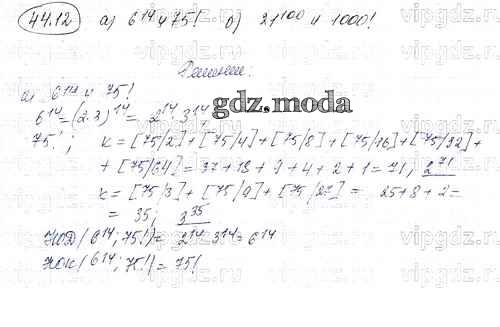 44.12 а) 6¹⁴ и 75! б) 21¹⁰⁰ и 1000!
Решение:
а) 6¹⁴ и 75!
6¹⁴ = (2·3)¹⁴ = 2¹⁴·3¹⁴;
75!; k = [75/2] + [75/4] + [75/8] + [75/16] + [75/32] +
+ [75/64] = 37 + 18 + 9 + 4 + 2 + 1 = 71; 2⁷¹
k = [75/3] + [75/9] + [75/27] = 25 + 8 + 2 =
= 35; 3³⁵
НОД(6¹⁴; 75!) = 2¹⁴·3¹⁴ = 6¹⁴
НОК(6¹⁴; 75!) = 75!
gdz.moda
vipgdz.ru